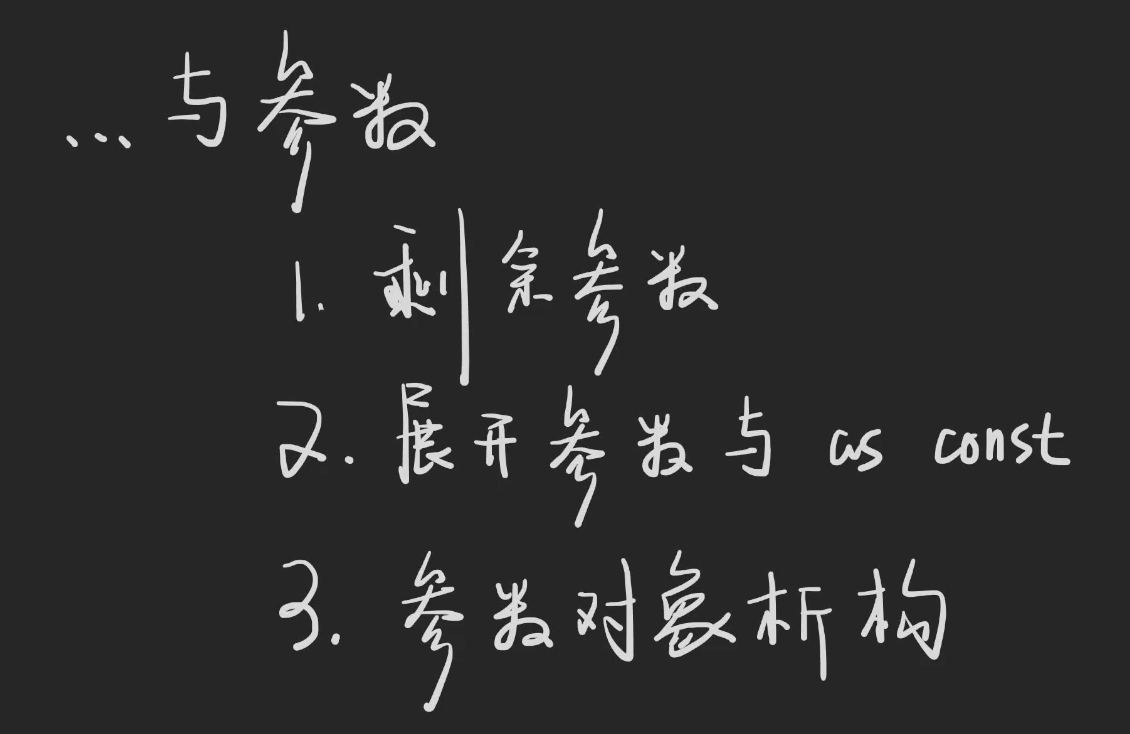 ...与参数
1. 剩余参数
2. 展开参数与 as const
3. 参数对象析构